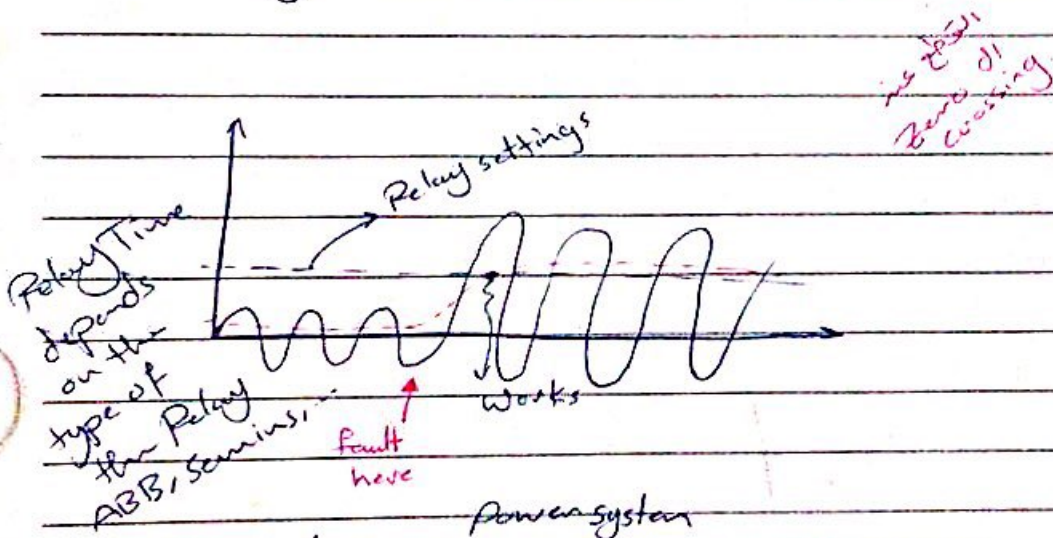 عند القطع
Zero ال
crossing
Relay settings
Relay Time
depends
on the
type of
the Relay
ABB, Semins, ...
fault
here
works
power system